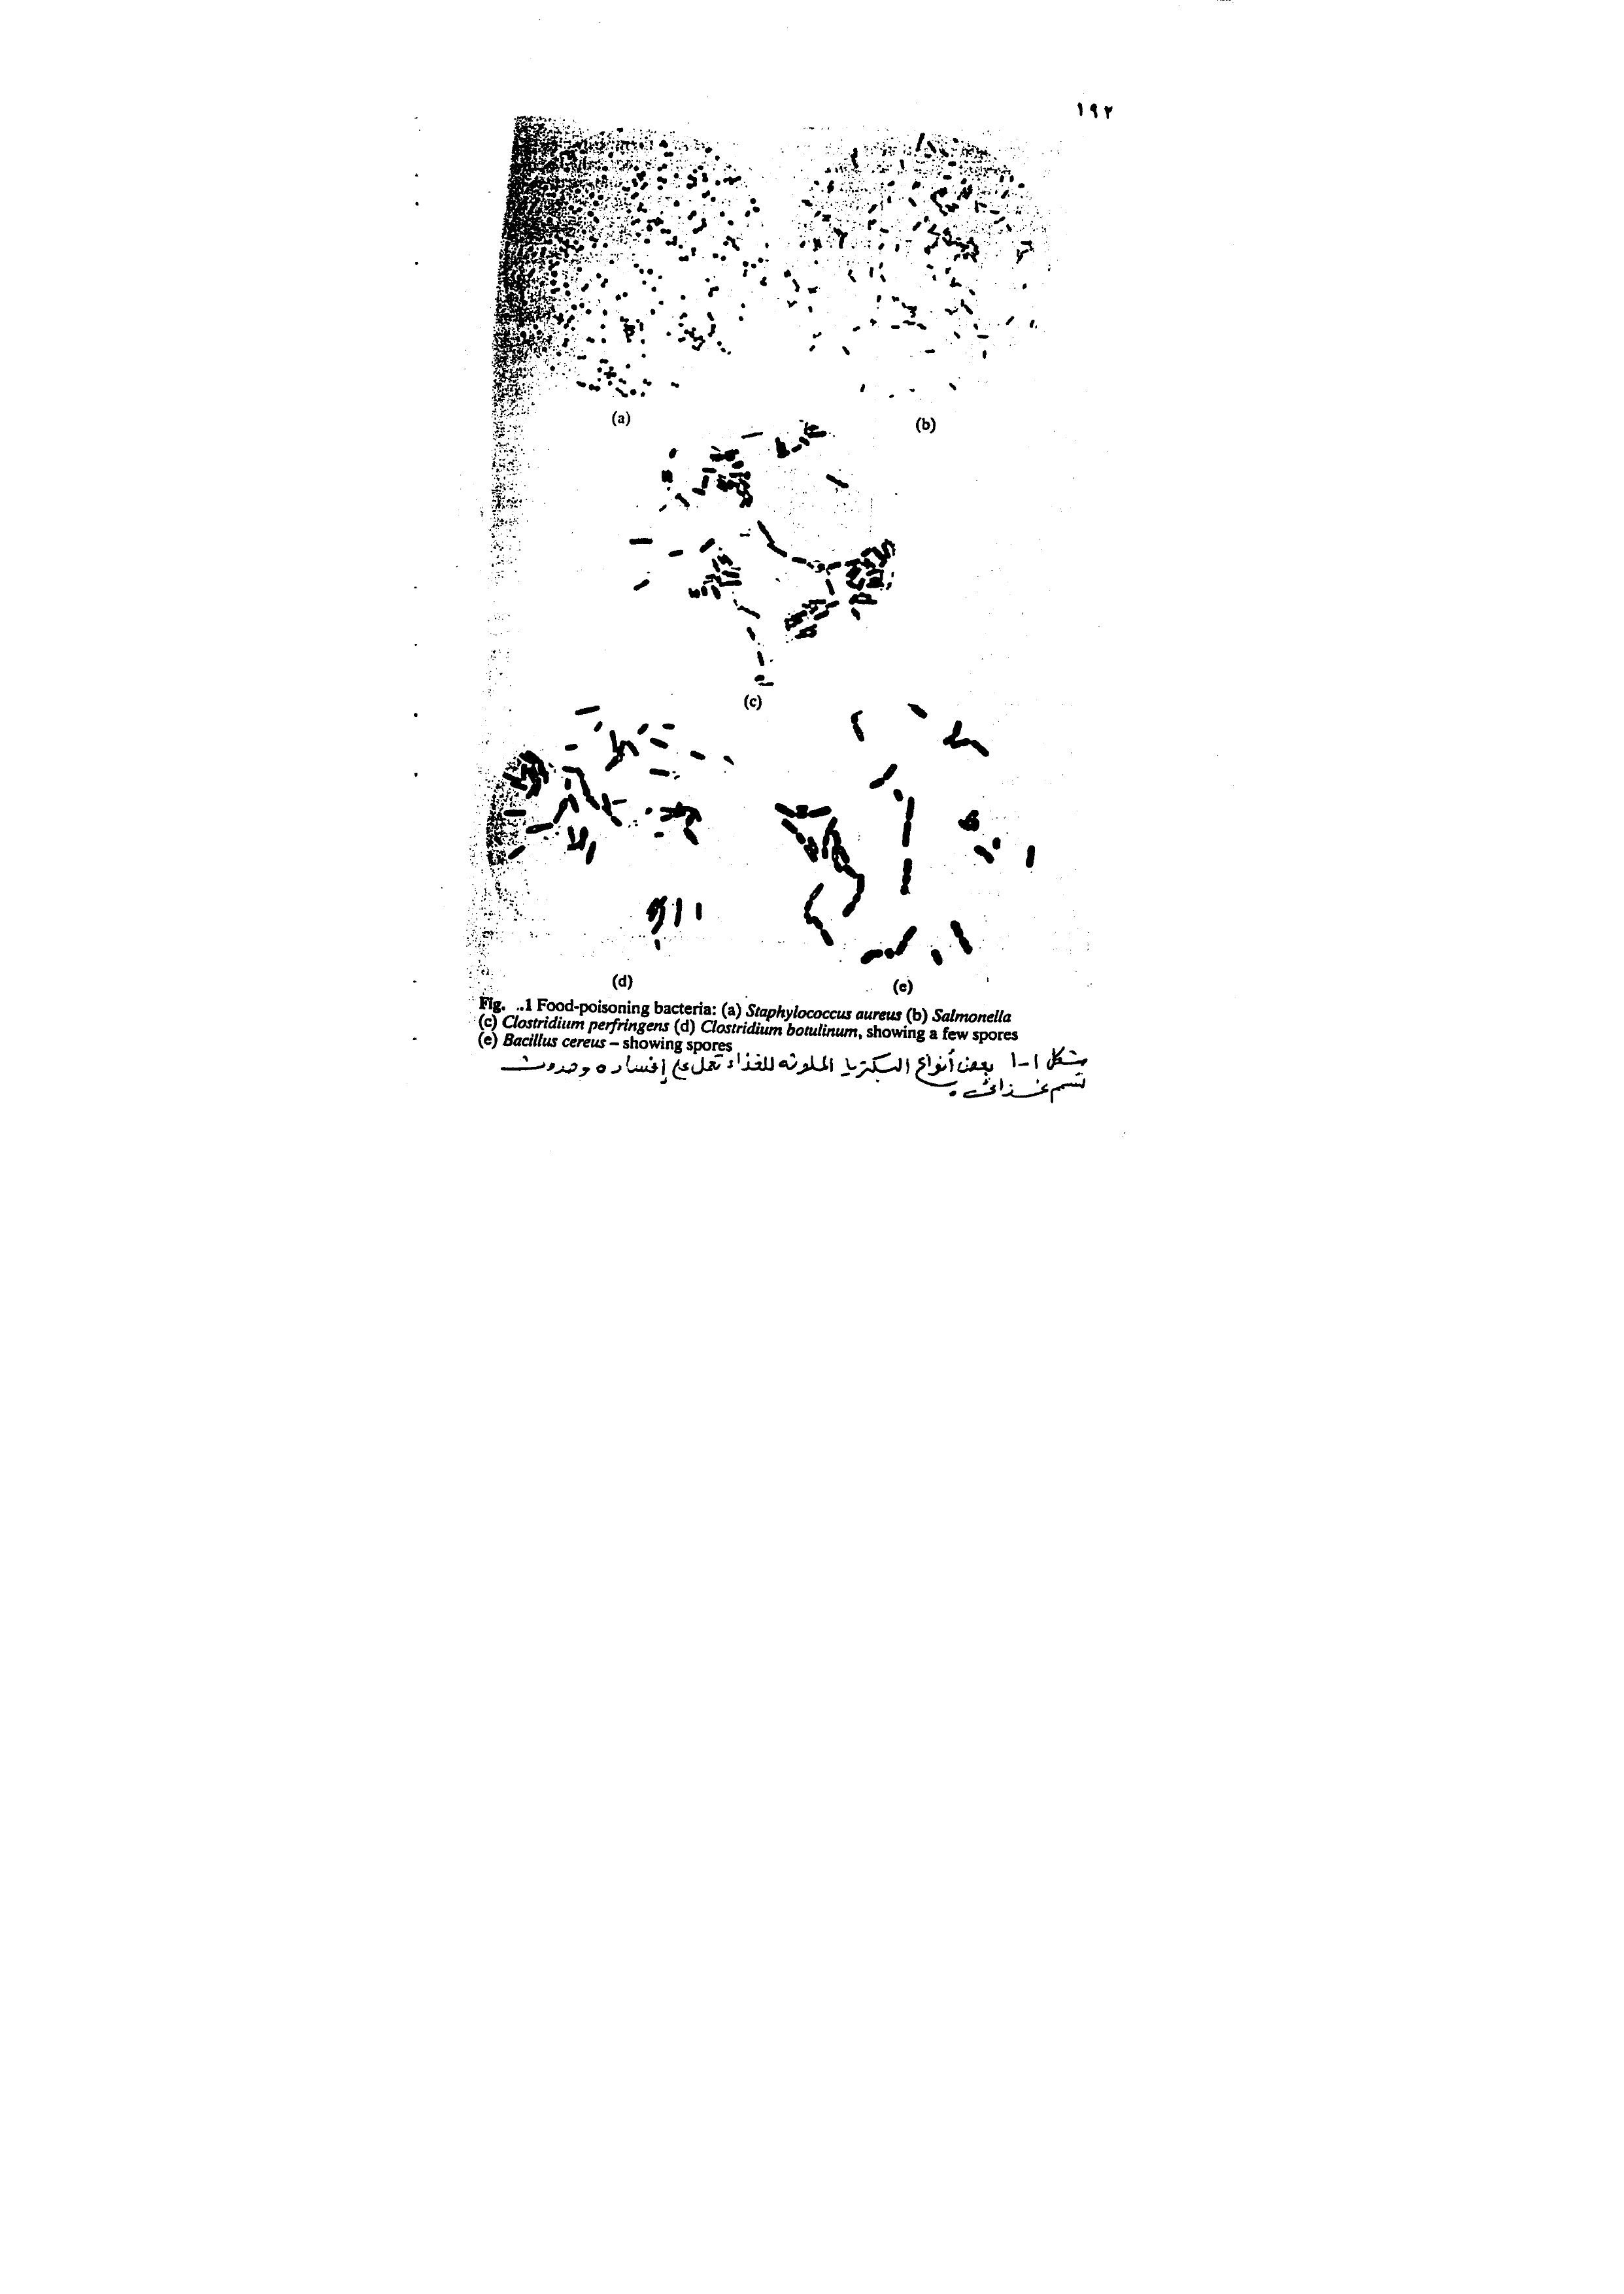 ١٩٢
(a)
(b)
(c)
(d)
(e)
Fig. ..1 Food-poisoning bacteria: (a) Staphylococcus aureus (b) Salmonella
(c) Clostridium perfringens (d) Clostridium botulinum, showing a few spores
(e) Bacillus cereus – showing spores
شكل ١-١ بعض أنواع البكتريا الملوثه للغذاء تعمل على إفساده وحدوث
تسمم غذائى .